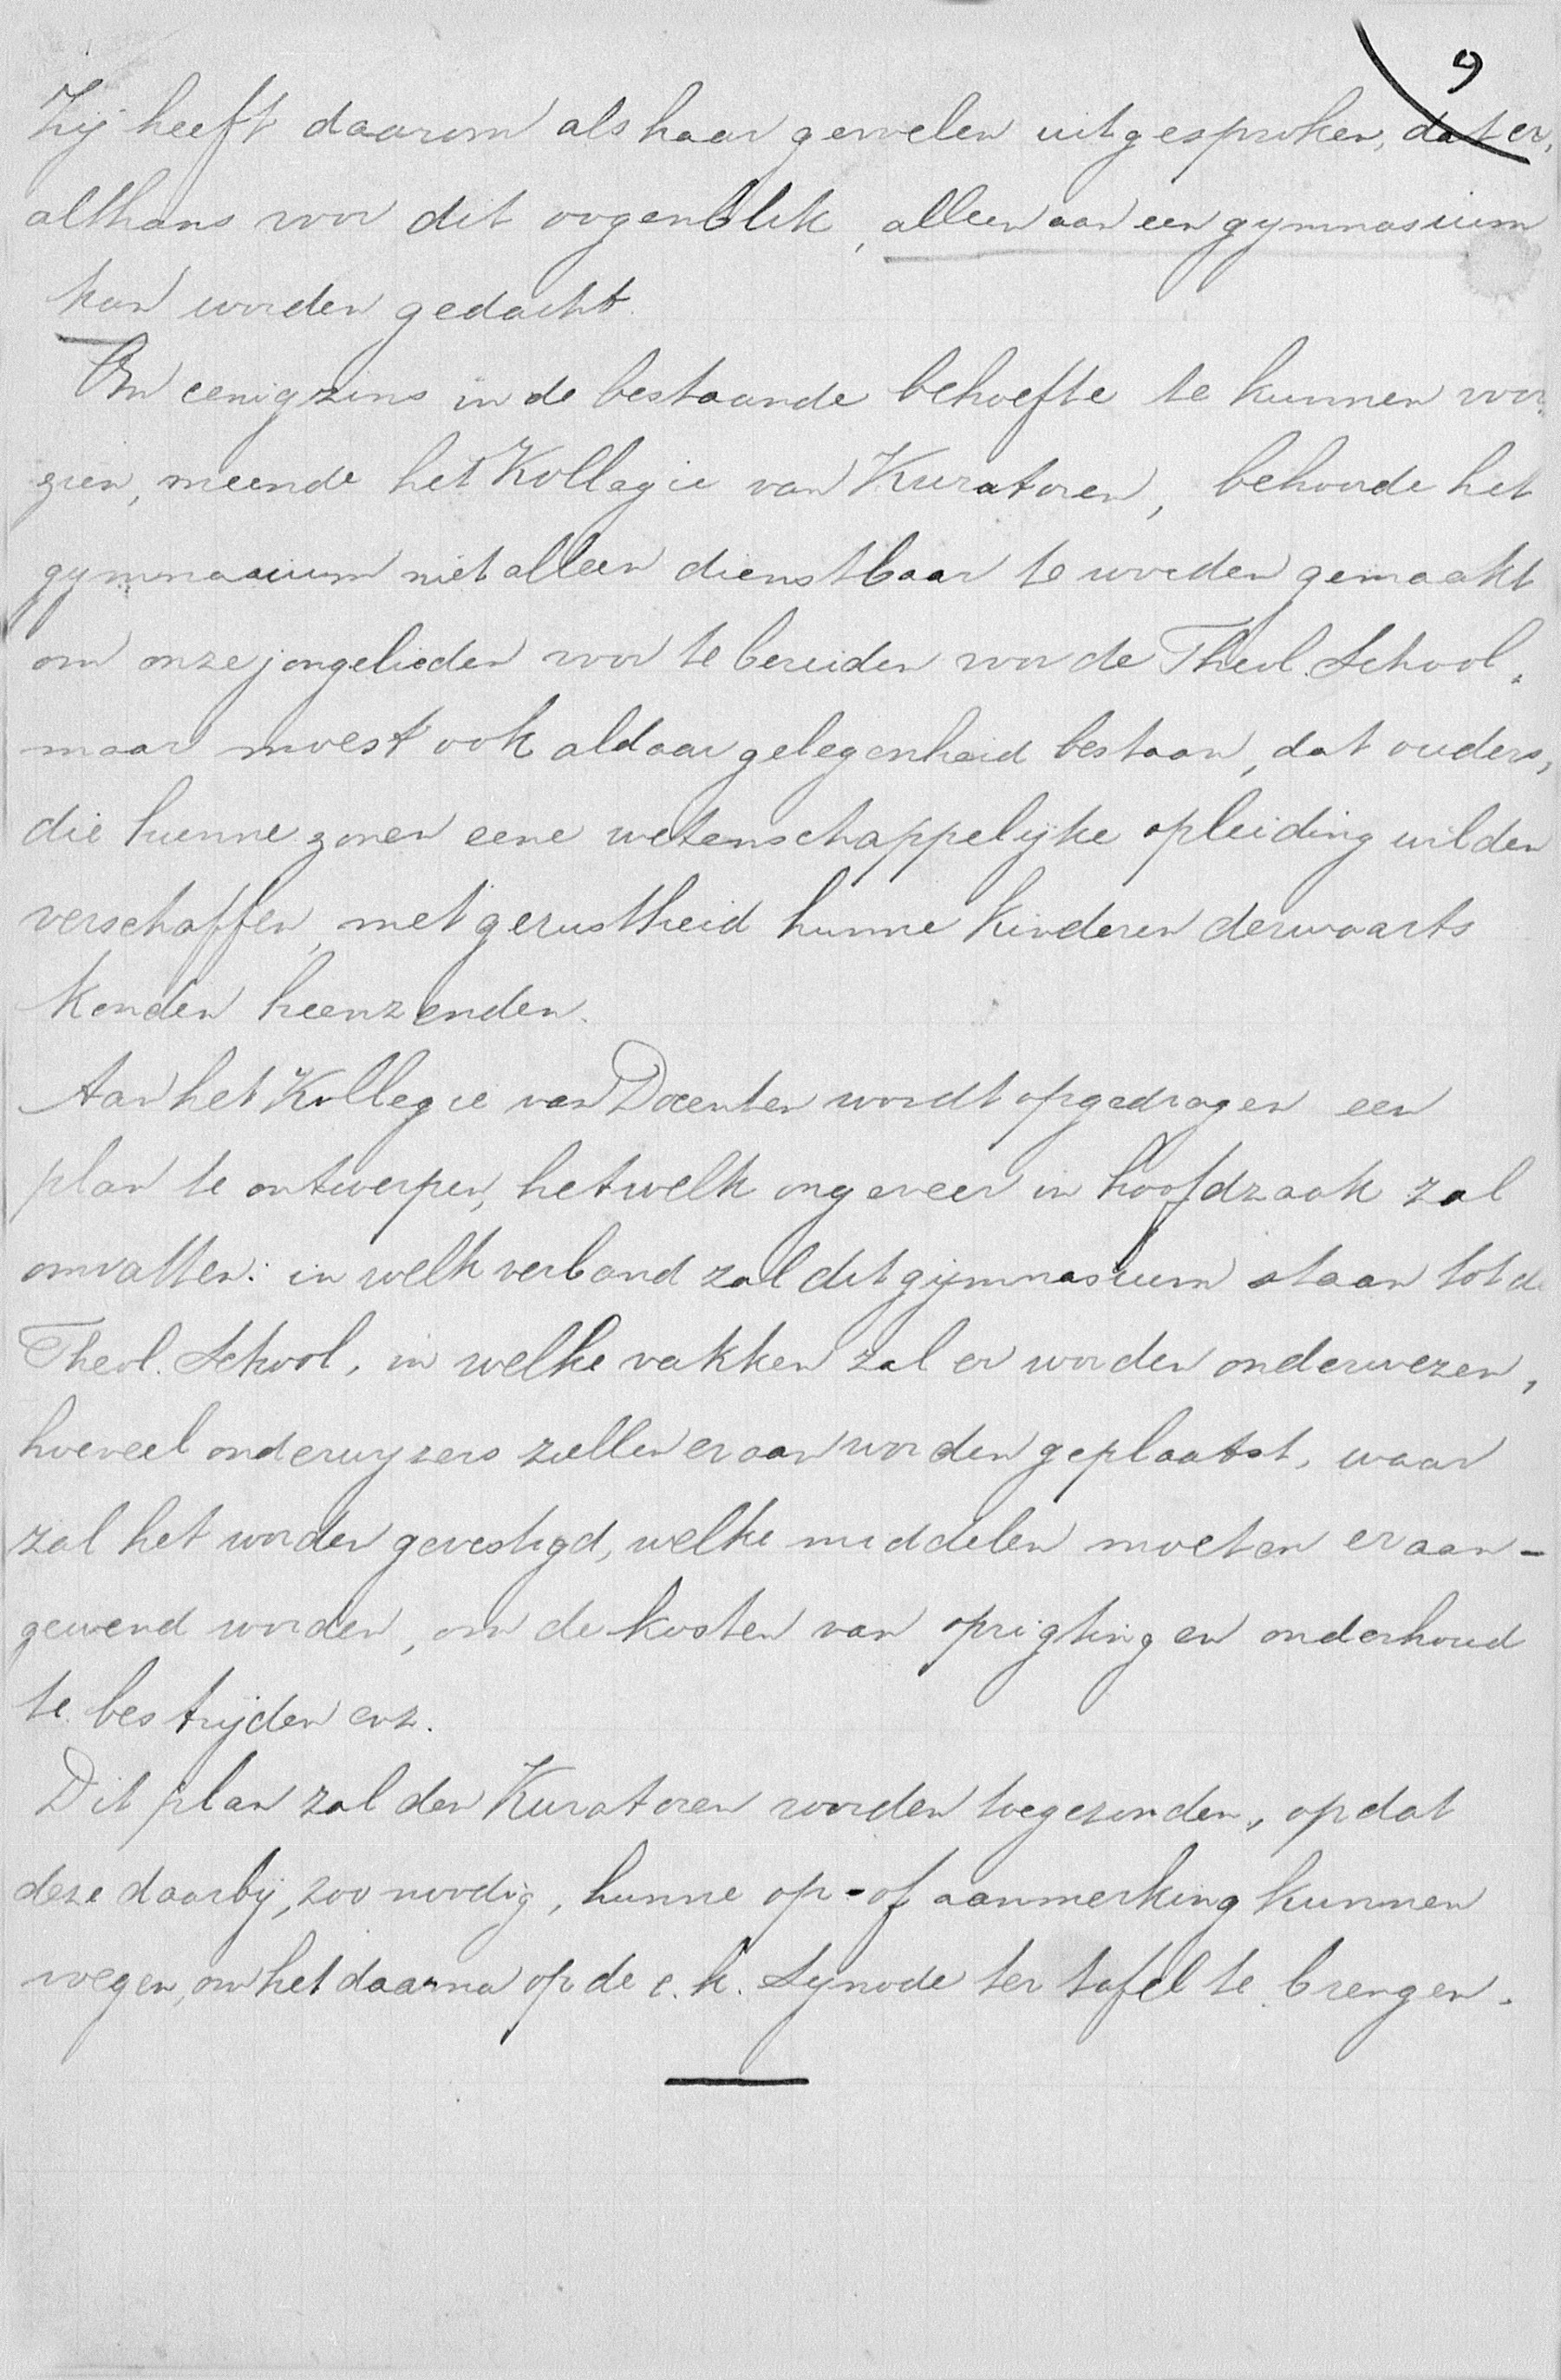 9
Zij heeft daarom als haar gevoelen uitgesproken, dat er,
althans voor dit oogenblik, alleen aan een gymnasium
kan worden gedacht.
Om eenigzins in de bestaande behoefte te kunnen voor-
zien, meende het Kollegie van Kuratoren, behoorde het
gymnasium niet alleen dienstbaar te worden gemaakt
om onze jongelieden voor te bereiden voor de Theol. School,
maar moest ook aldaar gelegenheid bestaan, dat ouders,
die hunne zonen eene wetenschappelijke opleiding wilden
verschaffen, met gerustheid hunne kinderen derwaarts
konden heenzenden.
Aan het Kollegie van Docenten wordt opgedragen een
plan te ontwerpen, hetwelk ongeveer in hoofdzaak zal
omvatten: in welk verband zal dit gymnasium staan tot de
Theol. School, in welke vakken zal er worden onderwezen,
hoeveel onderwyzers zullen er aan worden geplaatst, waar
zal het worden gevestigd, welke middelen moeten er aan-
gewend worden, om de kosten van oprigting en onderhoud
te bestrijden enz.
Dit plan zal den Kuratoren worden toegezonden, opdat
deze daarbij, zoo noodig, hunne op- of aanmerking kunnen
voegen, om het daarna op de e.k. Synode ter tafel te brengen.